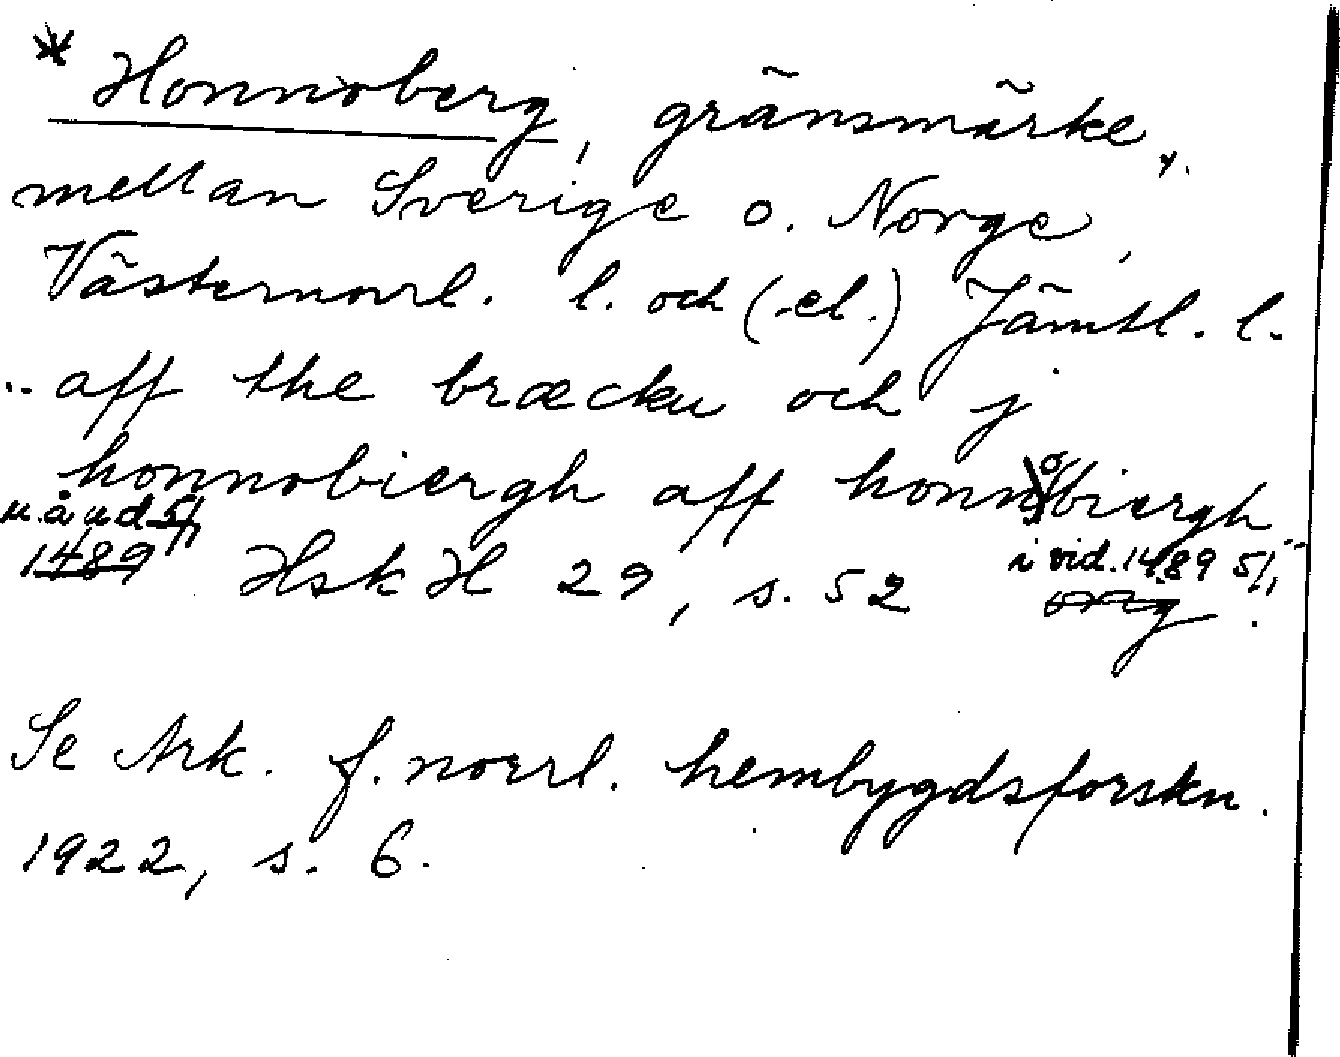 * Honnoberg, gränsmärke,
mellan Sverige o. Norge,
Västernorrl. l. och (el.) Jämtl. l.
.. aff the bræcku och j
honnobiergh aff honnobiergh
u å u d 5/1
1489 HskH 29, s. 52 i vid. 1489 5/1
orig.
Se Ark. f. norrl. hembygdsforskn.
1922, s. 6.